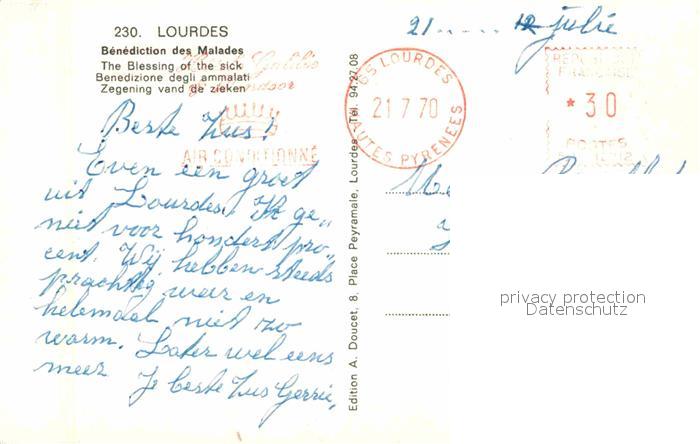 230. LOURDES
Bénédiction des Malades
The Blessing of the sick
Benedizione degli ammalati
Zegening vand de zieken
21 ...... 12 julie
65 LOURDES
21 7 70
HAUTES PYRENEES
REPUBLIQUE
FRANCAISE
* 30
POSTES
AIR CONDITIONNÉ
Beste Zus!
Even een groet
uit Lourdes. Ik ge„
niet voor honderd pro„
cent. Wij hebben steeds
prachtig weer en
helemaal niet zo
warm. Later wel eens
meer Je beste Zus Gerrie,
Edition A. Doucet, 8, Place Peyramale, Lourdes - Tél. 94.27.08
privacy protection
Datenschutz